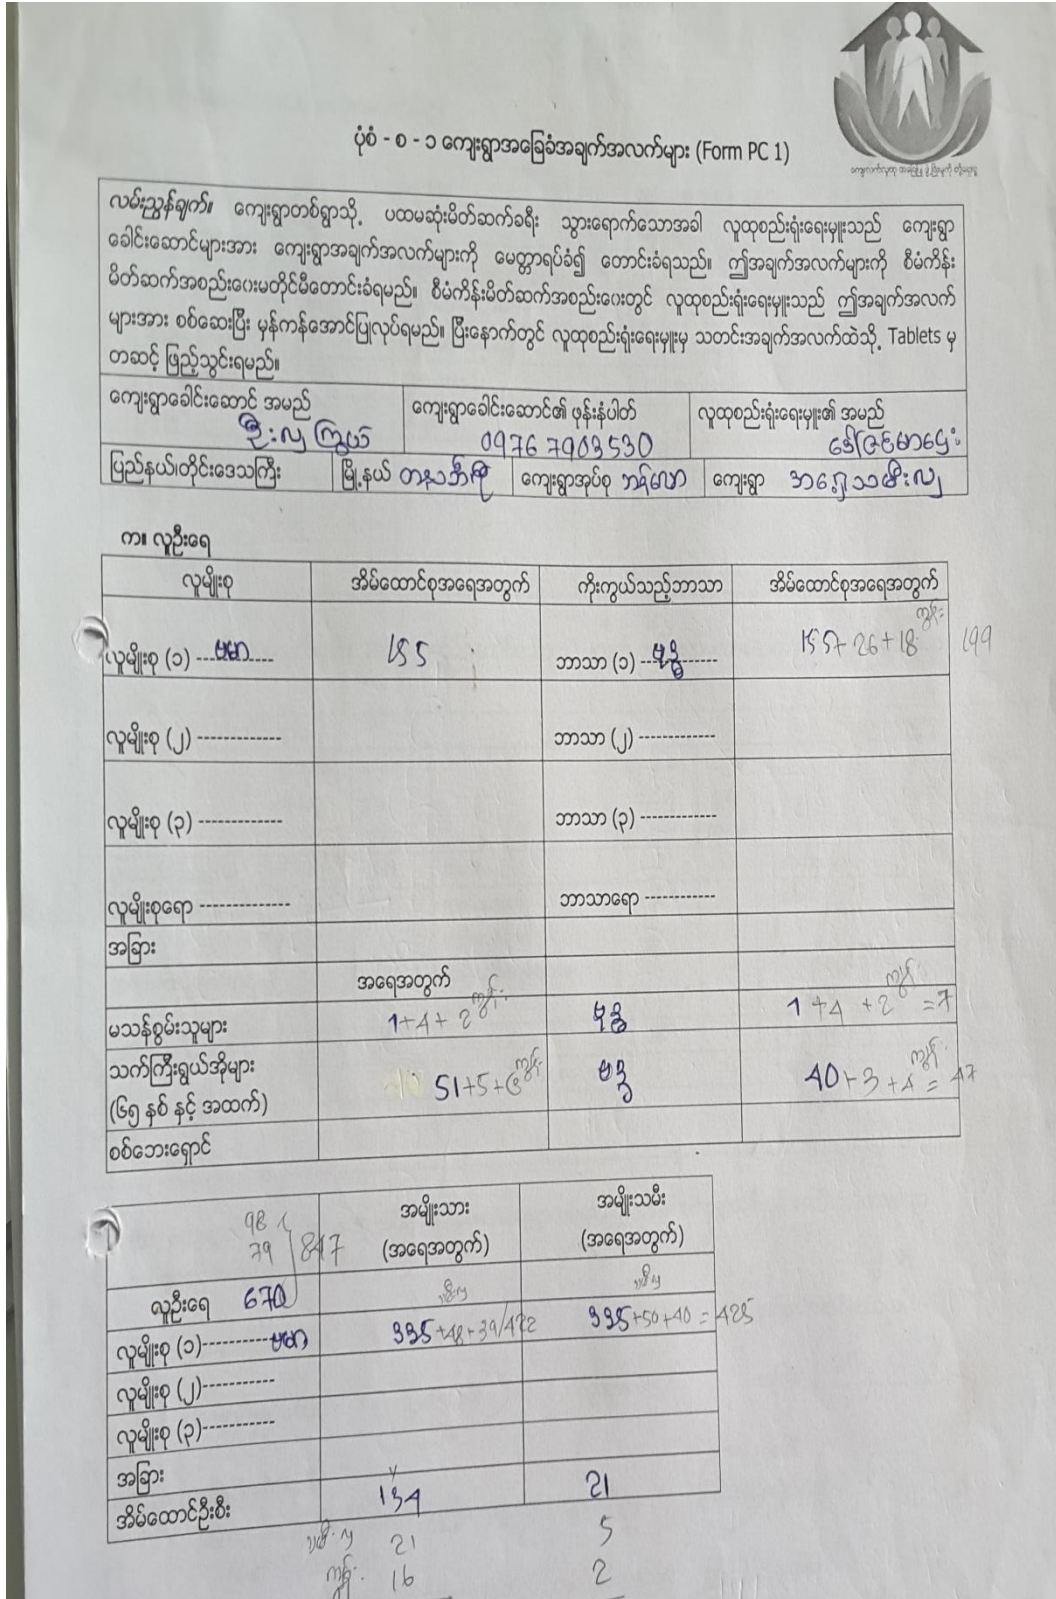 ပုံစံ - စ - ၁ ကျေးရွာအခြေခံအချက်အလက်များ (Form PC 1)
လမ်းညွှန်ချက်။ ကျေးရွာတစ်ရွာသို့ ပထမဆုံးမိတ်ဆက်ခရီး သွားရောက်သောအခါ လူထုစည်းရုံးရေးမှူးသည် ကျေးရွာ
ခေါင်းဆောင်များအား ကျေးရွာအချက်အလက်များကို မေတ္တာရပ်ခံ၍ တောင်းခံရသည်။ ဤအချက်အလက်များကို စီမံကိန်း
မိတ်ဆက်အစည်းဝေးမတိုင်မီတောင်းခံရမည်။ စီမံကိန်းမိတ်ဆက်အစည်းဝေးတွင် လူထုစည်းရုံးရေးမှူးသည် ဤအချက်အလက်
များအား စစ်ဆေးပြီး မှန်ကန်အောင်ပြုလုပ်ရမည်။ ပြီးနောက်တွင် လူထုစည်းရုံးရေးမှူးမှ သတင်းအချက်အလက်ထဲသို့ Tablets မှ
တဆင့် ဖြည့်သွင်းရမည်။
ကျေးရွာခေါင်းဆောင် အမည် ကျေးရွာခေါင်းဆောင်၏ ဖုန်းနံပါတ် လူထုစည်းရုံးရေးမှူး၏ အမည်
ဦးလှကြွယ် 09767903530
ပြည်နယ်၊တိုင်းဒေသကြီး မြို့နယ် တနင်္သာရီ ကျေးရွာအုပ်စု ကျေးရွာ
က။ လူဦးရေ
လူမျိုးစု အိမ်ထောင်စုအရေအတွက် ကိုးကွယ်သည့်ဘာသာ အိမ်ထောင်စုအရေအတွက်
ကျွန်း
လူမျိုးစု (၁) ---ဗမာ--- 155 ဘာသာ (၁) ---ဗုဒ္ဓ--- 155+26+18 199
လူမျိုးစု (၂) ------------- ဘာသာ (၂) -------------
လူမျိုးစု (၃) ------------- ဘာသာ (၃) -------------
လူမျိုးစုရော -------------- ဘာသာရော ------------
အခြား
အရေအတွက်
ကျွန်း ကျွန်း
မသန်စွမ်းသူများ 1+4+2 ဗုဒ္ဓ 1+4+2=7
သက်ကြီးရွယ်အိုများ ကျွန်း ကျွန်း
(၆၅ နှစ် နှင့် အထက်) 51+5+ ဗုဒ္ဓ 40+3+4=47
စစ်ဘေးရှောင်
အမျိုးသား အမျိုးသမီး
98
79 847 (အရေအတွက်) (အရေအတွက်)
လူဦးရေ 670
လူမျိုးစု (၁)----------ဗမာ 335+48+39/422 335+50+40=425
လူမျိုးစု (၂)-----------
လူမျိုးစု (၃)-----------
အခြား
အိမ်ထောင်ဦးစီး 134 21
21 5
ကျွန်း 16 2